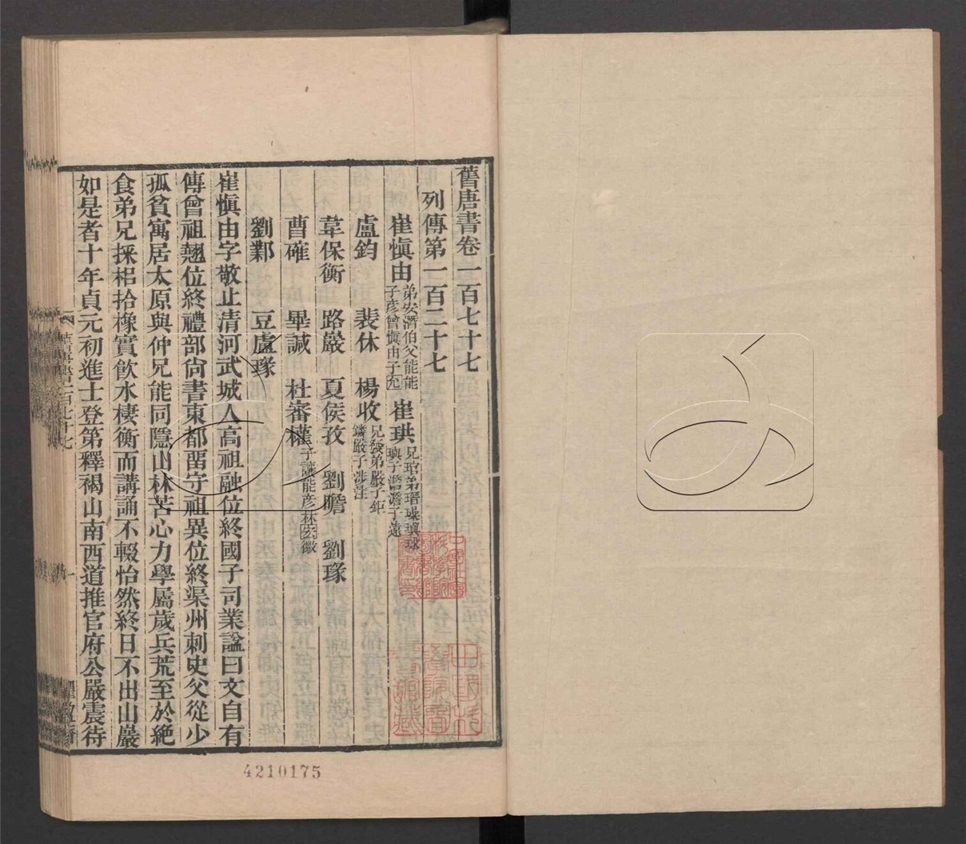 舊唐書卷一百七十七
列傳第一百二十七
崔愼由 弟安潛 伯父能 能子彥曾 愼由子允 崔珙 兄琯 弟瑨 璪 璵 球 璵子澹 澹子遠
盧鈞 裴休 楊收 兄發 弟嚴 子鉅 鏻 嚴子涉 注
韋保衡 路巖 夏侯孜 劉瞻 劉瑑
曹確 畢諴 杜審權 子讓能 彥林 弘徽
劉鄴 豆盧瑑
崔愼由字敬止清河武城人高祖融位終國子司業諡曰文自有
傳曾祖翹位終禮部尙書東都留守祖異位終渠州刺史父從少
孤貧寓居太原與仲兄能同隱山林苦心力學屬歲兵荒至於絕
食弟兄採梠拾橡實飮水棲衡而講誦不輟怡然終日不出山巖
如是者十年貞元初進士登第釋褐山南西道推官府公嚴震待
4210175